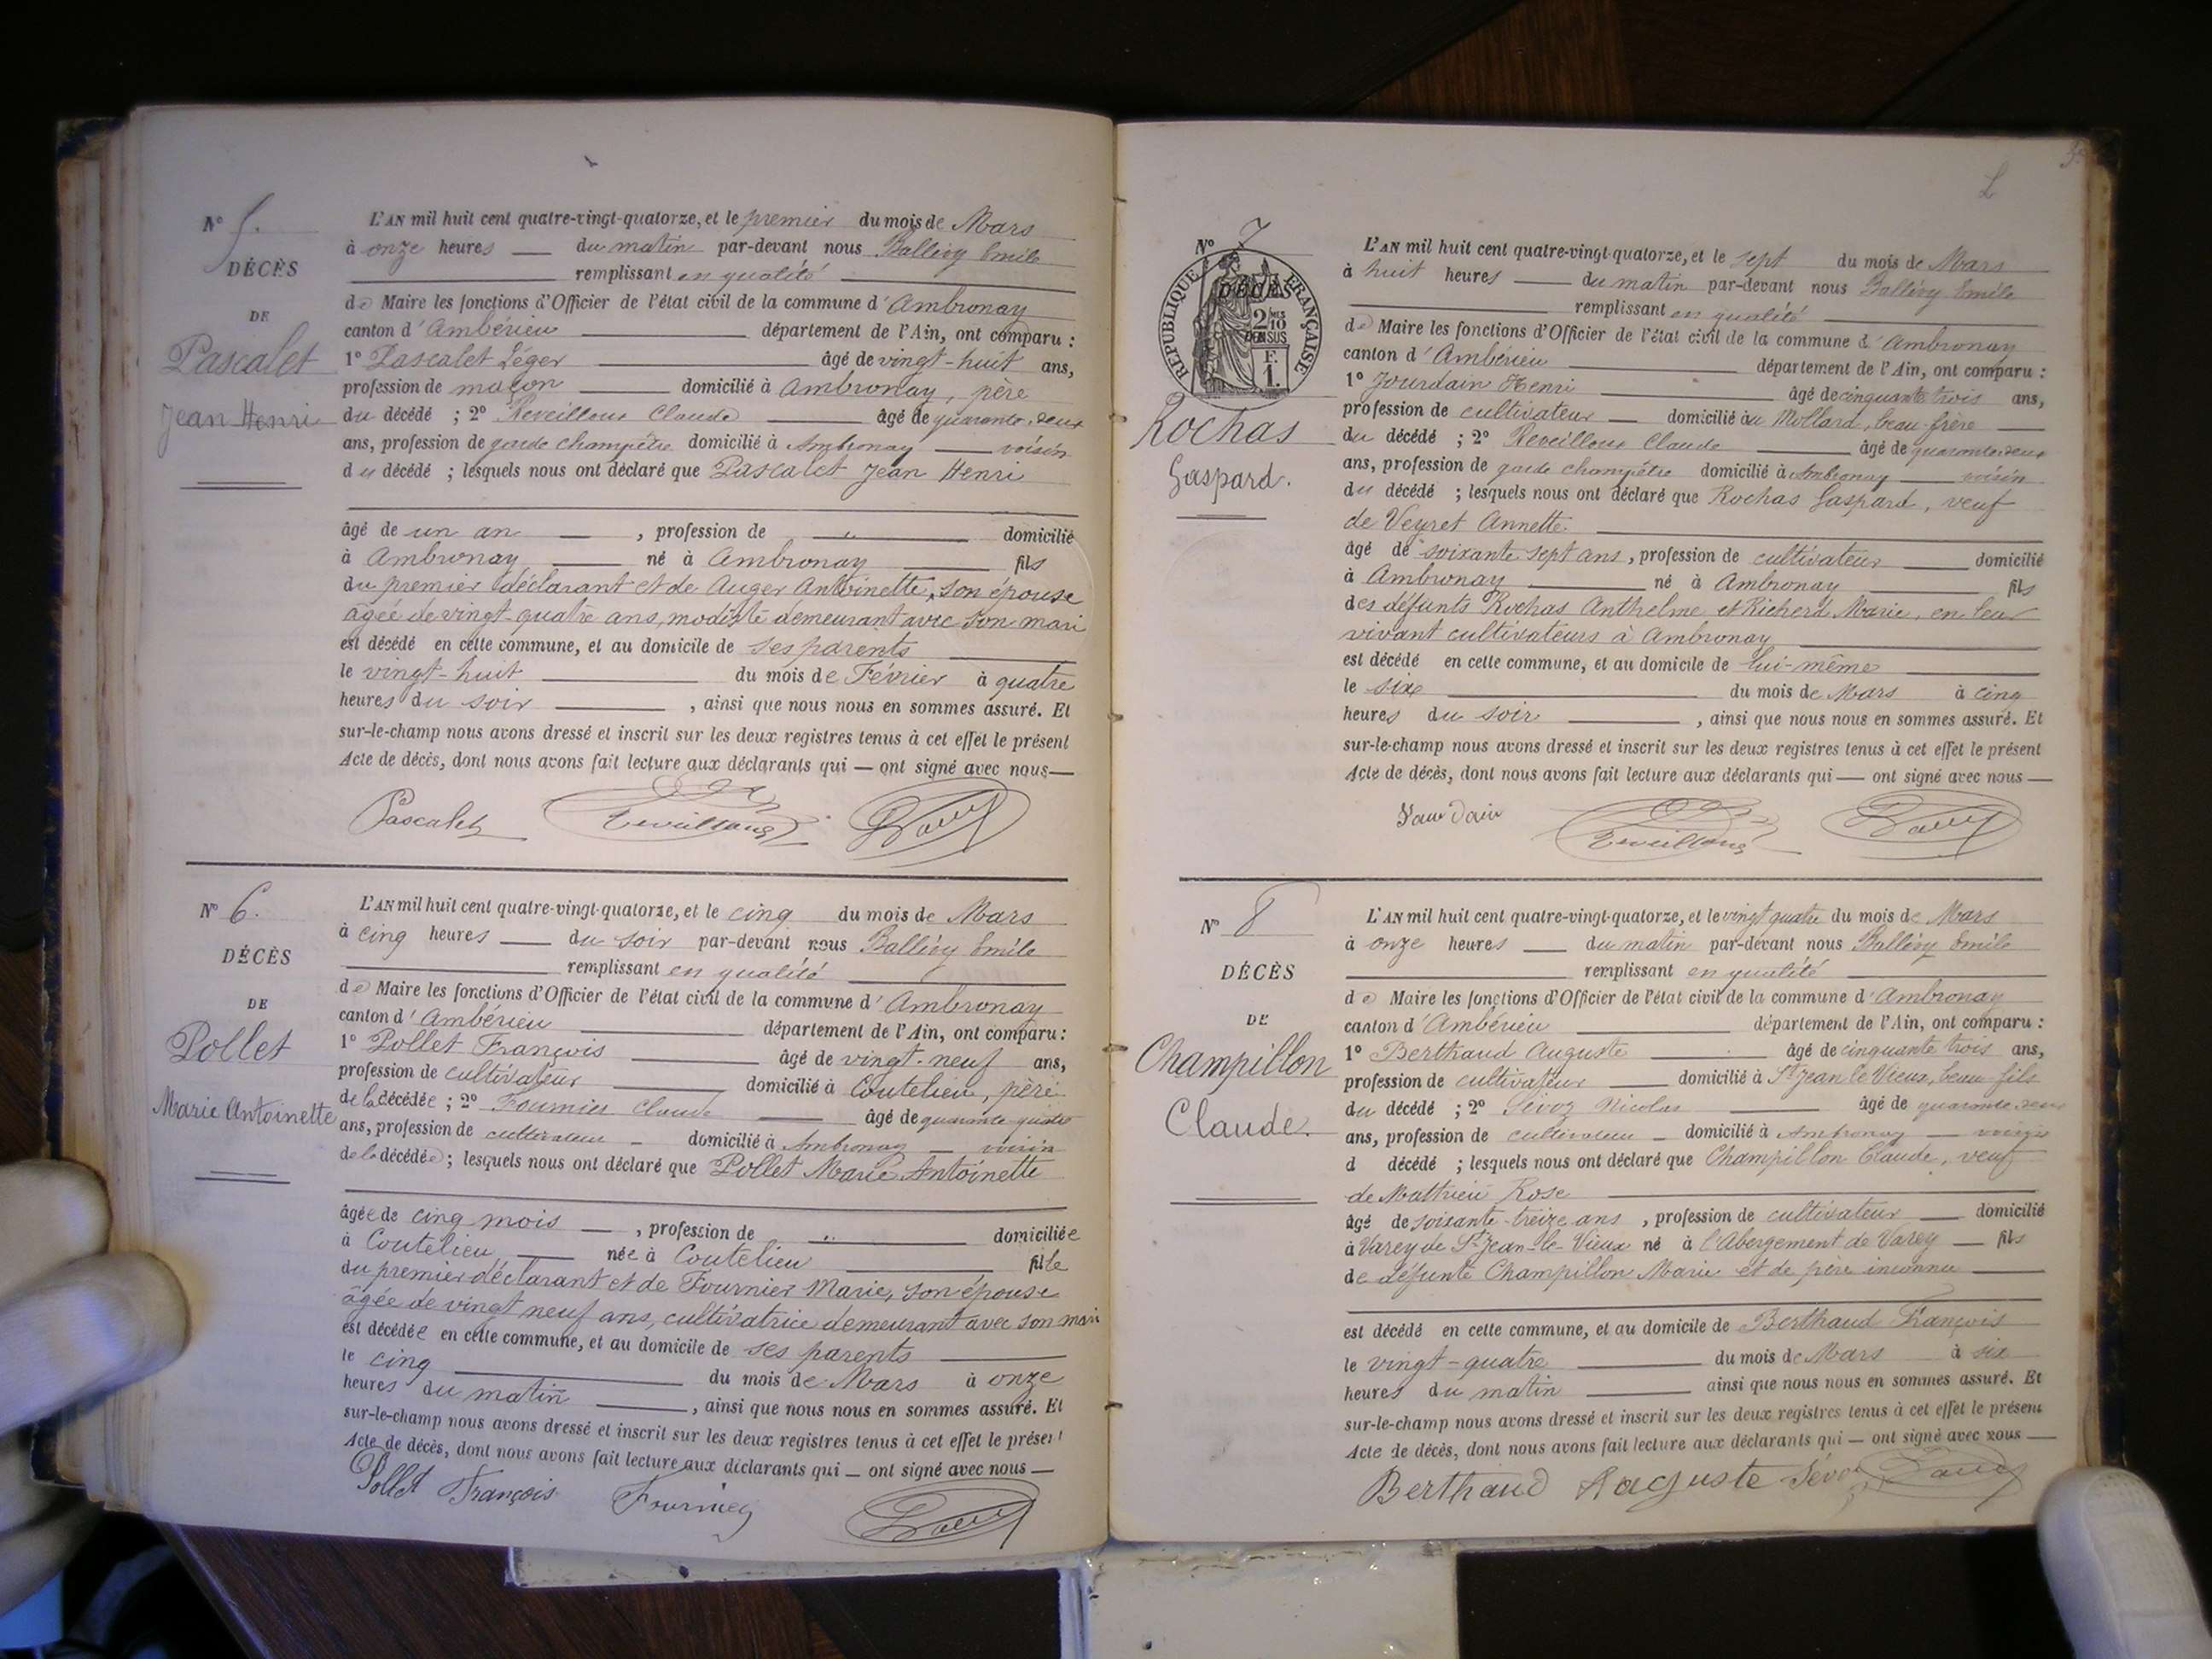 N° 5.
DÉCÈS
DE
Pascalet
Jean Henri
L'AN mil huit cent quatre-vingt-quatorze, et le premier du mois de Mars
à onze heures — du matin par-devant nous Ballivy Emile
remplissant en qualité
de Maire les fonctions d'Officier de l'état civil de la commune d'Ambronay
canton d'Ambérieu département de l'Ain, ont comparu :
1° Pascalet Léger âgé de vingt-huit ans,
profession de maçon domicilié à Ambronay, père
du décédé ; 2° Reveilloux Claude âgé de quarante-deux
ans, profession de garde champêtre domicilié à Ambronay — voisin
du décédé ; lesquels nous ont déclaré que Pascalet Jean Henri
âgé de un an — , profession de " domicilié
à Ambronay né à Ambronay fils
du premier déclarant et de Auger Antoinette, son épouse
âgée de vingt-quatre ans, modiste demeurant avec son mari
est décédé en cette commune, et au domicile de ses parents
le vingt-huit du mois de Février à quatre
heures du soir , ainsi que nous nous en sommes assuré. Et
sur-le-champ nous avons dressé et inscrit sur les deux registres tenus à cet effet le présent
Acte de décès, dont nous avons fait lecture aux déclarants qui — ont signé avec nous —
Pascalet
N° 6.
DÉCÈS
DE
Pollet
Marie Antoinette
L'AN mil huit cent quatre-vingt-quatorze, et le cinq du mois de Mars
à cinq heures — du soir par-devant nous Ballivy Emile
remplissant en qualité
de Maire les fonctions d'Officier de l'état civil de la commune d'Ambronay
canton d'Ambérieu département de l'Ain, ont comparu :
1° Pollet François âgé de vingt-neuf ans,
profession de cultivateur domicilié à Coutelieu, père
de la décédée ; 2° Fournier Claude âgé de quarante
ans, profession de cultivateur — domicilié à Ambronay — voisin
de la décédée ; lesquels nous ont déclaré que Pollet Marie Antoinette
âgée de cinq mois — , profession de " domiciliée
à Coutelieu née à Coutelieu fille
du premier déclarant et de Fournier Marie, son épouse
âgée de vingt neuf ans, cultivatrice demeurant avec son mari
est décédée en cette commune, et au domicile de ses parents
le cinq du mois de Mars à onze
heures du matin , ainsi que nous nous en sommes assuré. Et
sur-le-champ nous avons dressé et inscrit sur les deux registres tenus à cet effet le présent
Acte de décès, dont nous avons fait lecture aux déclarants qui — ont signé avec nous —
Pollet François Fournier
N° 7
RÉPUBLIQUE FRANÇAISE
DÉCÈS
2/10 EN SUS
F. 1.
Rochas
Gaspard.
L'AN mil huit cent quatre-vingt-quatorze, et le sept du mois de Mars
à huit heures — du matin par-devant nous Ballivy Emile
remplissant en qualité
de Maire les fonctions d'Officier de l'état civil de la commune d'Ambronay
canton d'Ambérieu département de l'Ain, ont comparu :
1° Jourdain Henri âgé de cinquante trois ans,
profession de cultivateur — domicilié au Mollard, beau-frère —
du décédé ; 2° Reveilloux Claude âgé de quarante deux
ans, profession de garde champêtre domicilié à Ambronay — voisin
du décédé ; lesquels nous ont déclaré que Rochas Gaspard, veuf
de Veyret Annette.
âgé de soixante sept ans, profession de cultivateur — domicilié
à Ambronay né à Ambronay fils
des défunts Rochas Anthelme et Richerd Marie, en leur
vivant cultivateurs à Ambronay
est décédé en cette commune, et au domicile de lui-même
le six du mois de Mars à cinq
heures du soir , ainsi que nous nous en sommes assuré. Et
sur-le-champ nous avons dressé et inscrit sur les deux registres tenus à cet effet le présent
Acte de décès, dont nous avons fait lecture aux déclarants qui — ont signé avec nous —
N° 8
DÉCÈS
DE
Champillon
Claude.
L'AN mil huit cent quatre-vingt-quatorze, et le vingt quatre du mois de Mars
à onze heures — du matin par-devant nous Ballivy Emile
remplissant en qualité
de Maire les fonctions d'Officier de l'état civil de la commune d'Ambronay
canton d'Ambérieu département de l'Ain, ont comparu :
1° Berthaud Auguste âgé de cinquante trois ans,
profession de cultivateur domicilié à St Jean le Vieux, beau-fils
du décédé ; 2° Sévoz Nicolas âgé de quarante deux
ans, profession de cultivateur — domicilié à Ambronay — voisin
d décédé ; lesquels nous ont déclaré que Champillon Claude, veuf
de Matthieu Rose
âgé de soixante-treize ans , profession de cultivateur — domicilié
à Varey de St Jean-le-Vieux né à l'Abergement de Varey — fils
de défunte Champillon Marie et de père inconnu
est décédé en cette commune, et au domicile de Berthaud François
le vingt-quatre du mois de Mars à six
heures du matin ainsi que nous nous en sommes assuré. Et
sur-le-champ nous avons dressé et inscrit sur les deux registres tenus à cet effet le présent
Acte de décès, dont nous avons fait lecture aux déclarants qui — ont signé avec nous —
Berthaud Auguste